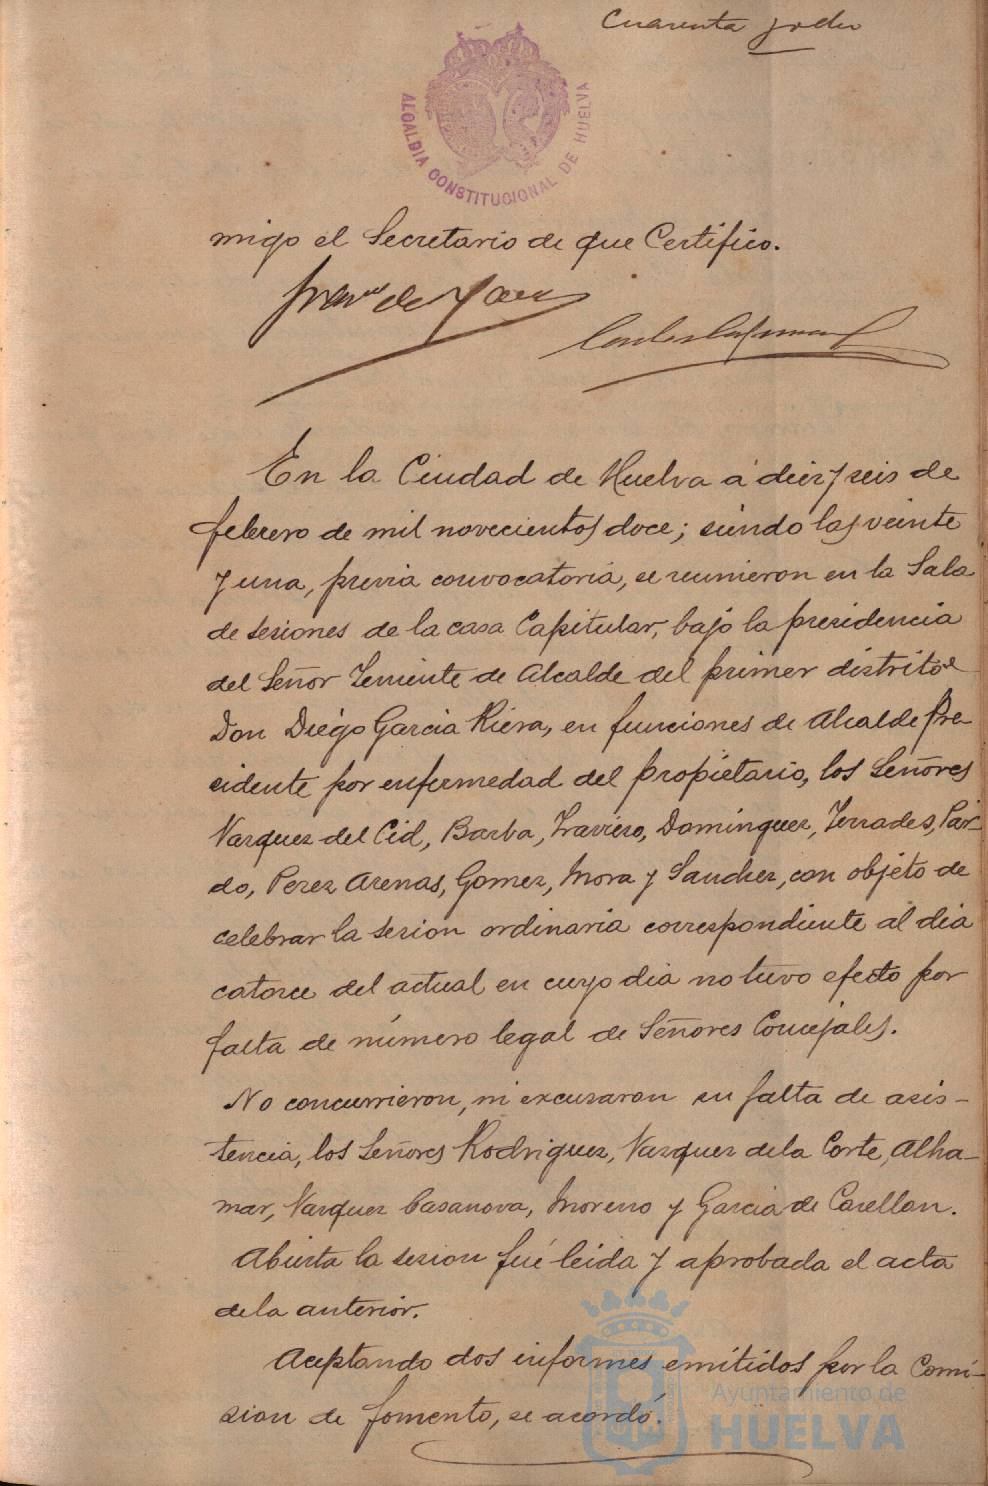 Cuarenta y dos
ALCALDIA CONSTITUCIONAL DE HUELVA
migo el Secretario de que Certifico.
En la Ciudad de Huelva á diez y seis de
febrero de mil novecientos doce; siendo las veinte
y una, previa convocatoria, se reunieron en la Sala
de sesiones de la casa Capitular, bajo la presidencia
del Señor Teniente de Alcalde del primer distrito
Don Diégo Garcia Riera, en funciones de Alcalde Pre-
cidente por enfermedad del propietario, los Señores
Vazquez del Cid, Barba, Travieso, Dominguez, Terrades, Par-
do, Perez Arenas, Gomez, Mora y Sanchez, con objeto de
celebrar la sesion ordinaria correspondiente al dia
catorce del actual en cuyo dia no tuvo efecto por
falta de número legal de Señores Concejales.
No concurrieron, ni excusaron su falta de asis-
tencia, los Señores Rodriguez, Vazquez de la Corte, Alha-
mar, Vazquez Casanova, Moreno y Garcia de Casellan.
Abierta la sesion fué leida y aprobada el acta
de la anterior.
Aceptando dos informes emitidos por la Comi-
sion de fomento, se acordó.
Ayuntamiento de
HUELVA